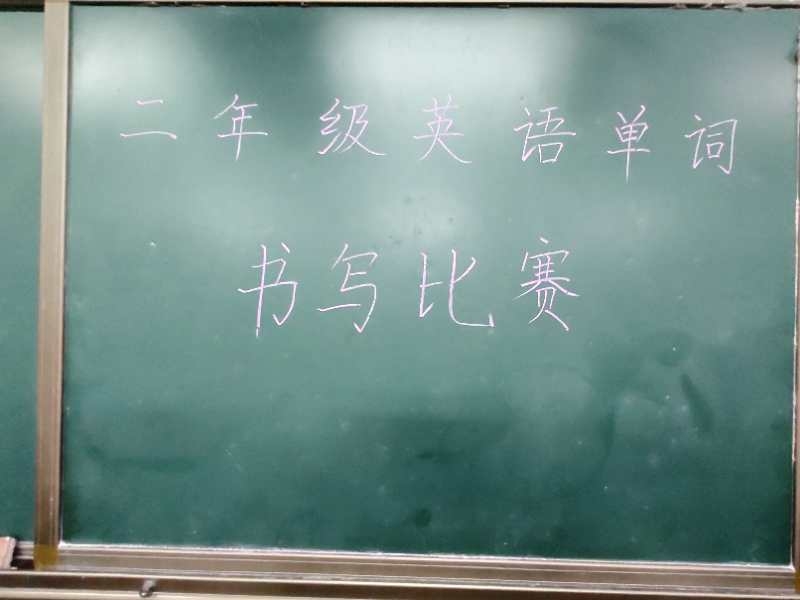 二年级英语单词
书写比赛